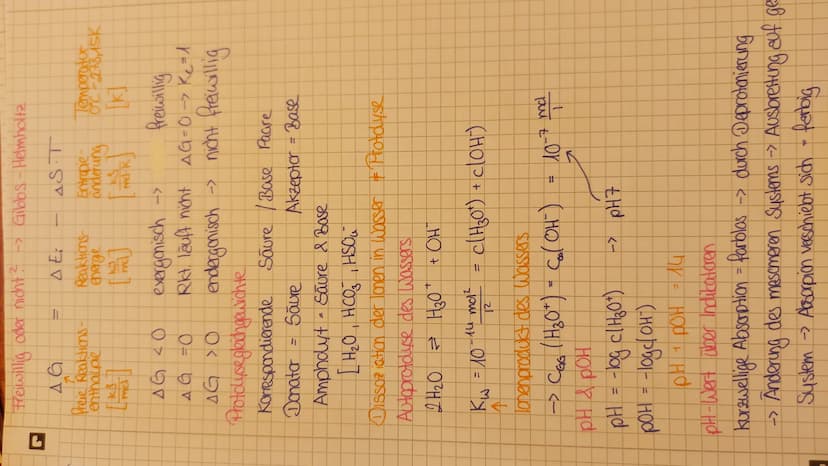 Freiwillig oder nicht? → Gibbs-Helmholtz
ΔG = ΔEi − ΔS·T
freie Reaktions- Reaktions- Entropie- Temperatur
enthalpie energie änderung 0°C = 273,15K
[kJ/mol] [kJ/mol] [kJ/mol·K] [K]
ΔG < 0 exergonisch → freiwillig
ΔG = 0 Rkt läuft nicht ΔG=0 → Kc=1
ΔG > 0 endergonisch → nicht freiwillig
Protolysegleichgewichte
Korrespondierende Säure / Base Paare
Donator = Säure Akzeptor = Base
Ampholyt = Säure & Base
[H2O, HCO3⁻, HSO4⁻
Dissoziation der Ionen in Wasser ≠ Protolyse
Autoprotolyse des Wassers
2H2O ⇌ H3O⁺ + OH⁻
Kw = 10⁻¹⁴ mol²/l² = c(H3O⁺) + c(OH⁻)
Ionenprodukt des Wassers
→ CGG (H3O⁺) = CGG(OH⁻) = 10⁻⁷ mol/l
pH & pOH
pH = -log c(H3O⁺) → pH7
pOH = -log c(OH⁻)
pH + pOH = 14
pH-Wert über Indikatoren
kurzwellige Absorption = farblos → durch Deprotonierung
→ Änderung des mesomeren Systems → Ausbreitung auf
System → Absorpion verschiebt sich = farbig